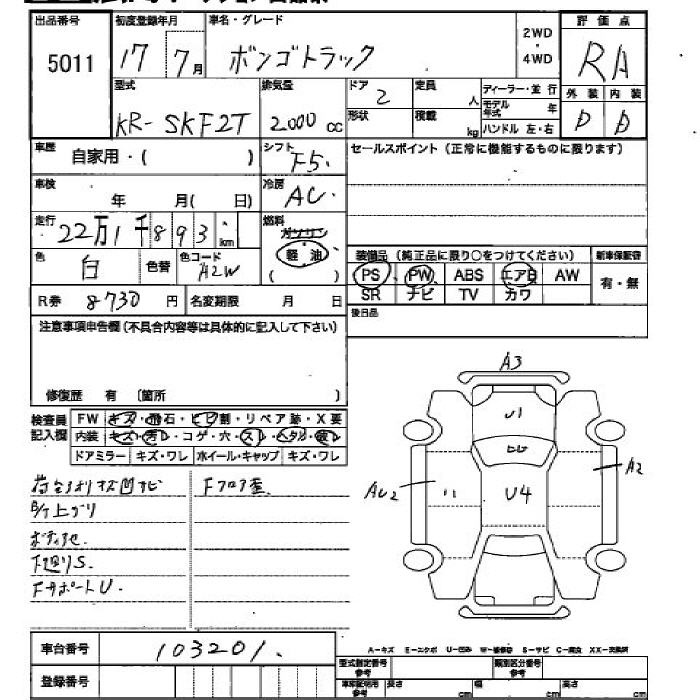 出品番号 初度登録年月 車名・グレード 2WD・4WD 評価点
5011 17 7月 ボンゴトラック RA
型式 排気量 ドア 定員 ディーラー・並行 外装 内装
KR-SKF2T 2000cc 2 人 モデル年式 年 D D
形状 積載 kg ハンドル 左・右
車歴 自家用・( ) シフト F5. セールスポイント(正常に機能するものに限ります)
車検 年 月( 日) 冷房 AC
走行 22万1千893km 燃料 ガソリン
軽油
( )
色 白 色替 色コード A2W
装備品 (純正品に限り○をつけてください) 新車保証書
PS PW ABS エアB AW 有・無
SR ナビ TV カワ
R券 8730円 名変期限 月 日
後日品
注意事項申告欄(不具合内容等は具体的に記入して下さい)
修復歴 有 〔箇所 〕
検査員記入欄 FW キズ・飛石・ヒビ割・リペア跡・X要
内装 キズ・汚レ・コゲ・穴・スレ・ヘタリ・破レ
ドアミラー キズ・ワレ ホイール・キャップ キズ・ワレ
Fフロア歪
上ブリ
F廻りS.
FサポートU.
A3
U1
U4
AU2
A2
車台番号 103201.
A-キズ E-エクボ U-凹み W-補修卷 S-サビ C-腐食 XX-交換済
登録番号
型式指定番号 参考 類別区分番号 参考
車車証明用 参考 長さ cm 幅 cm 高さ cm